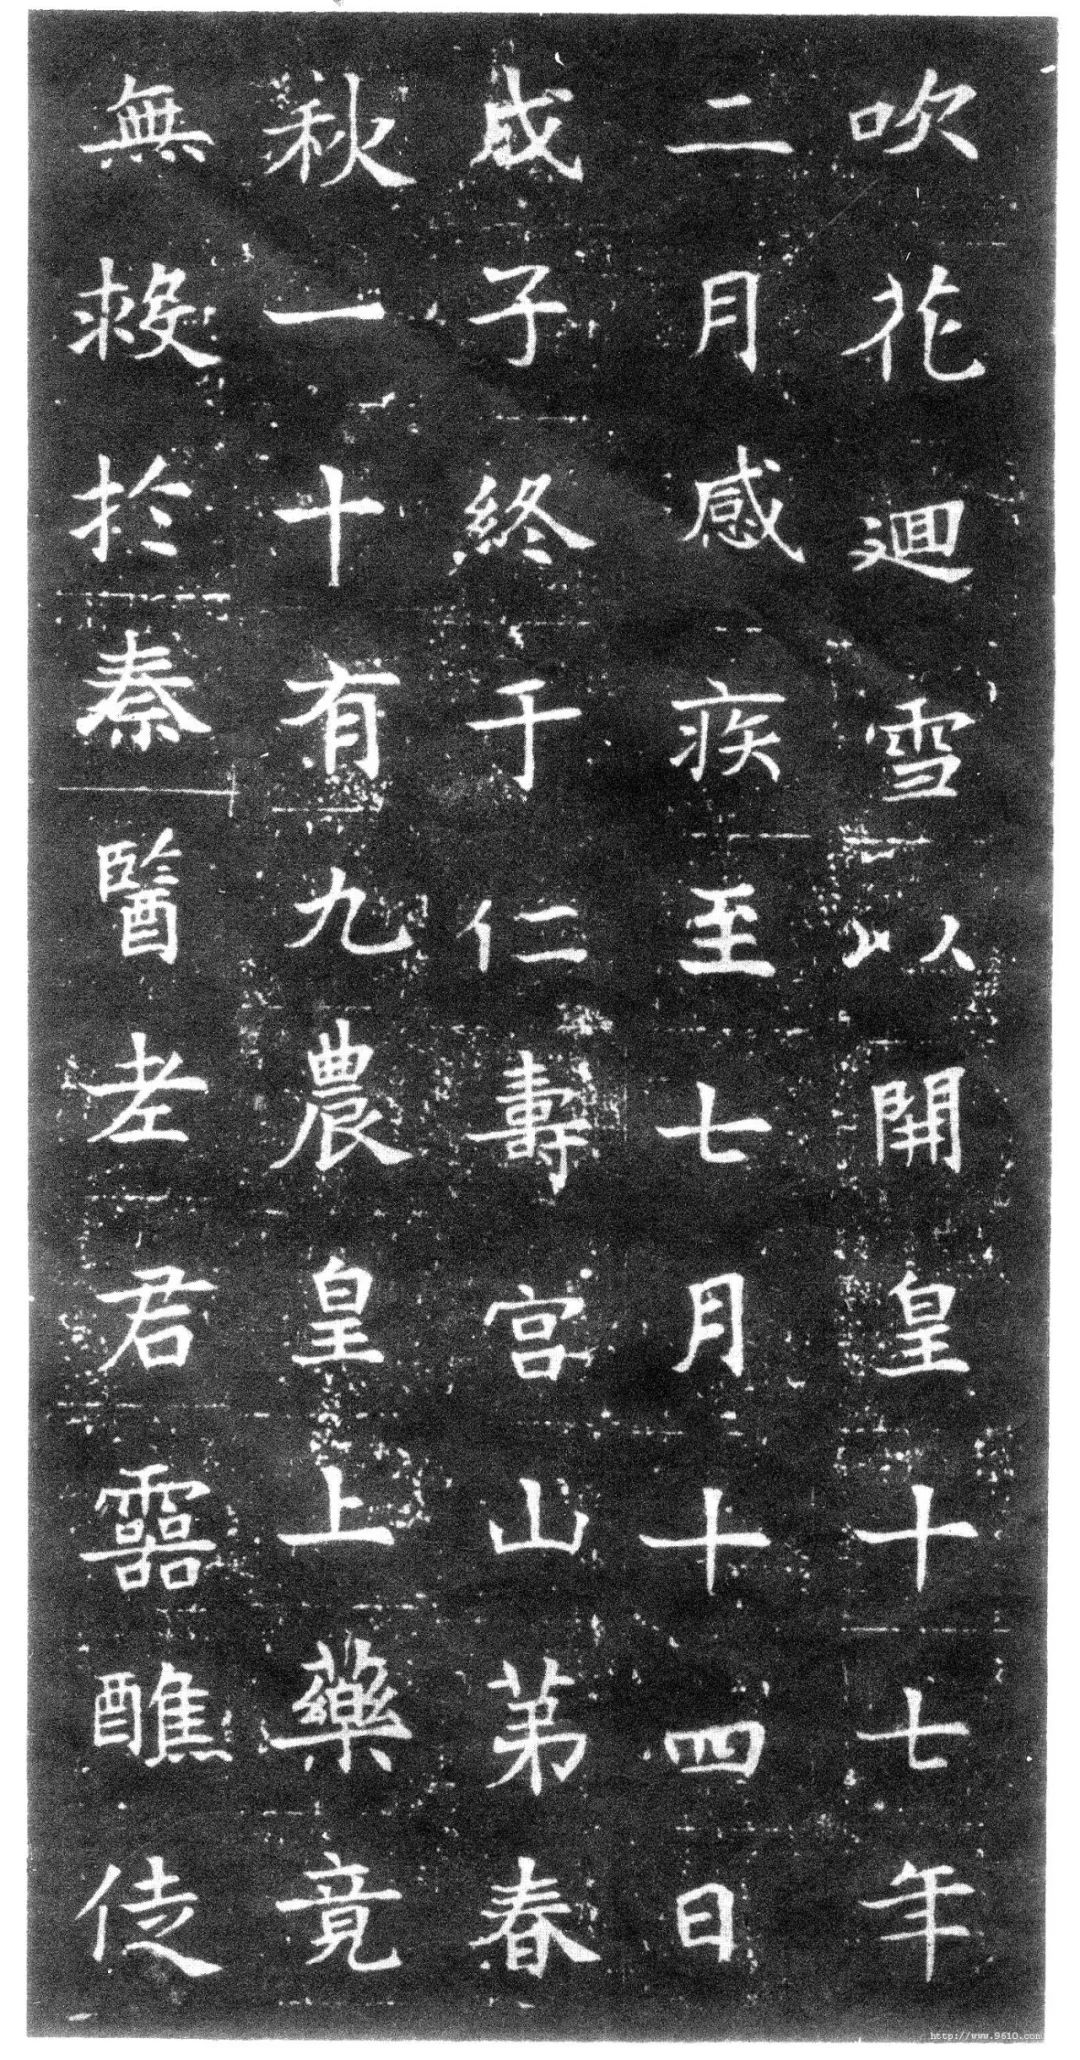 吹花迴雪以開皇十七年
二月感疾至七月十四日
戍子終于仁壽宮山苐春
秋一十有九農皇上藥竟
無救扵秦醫老君靈醮徒
http://www.9610.com